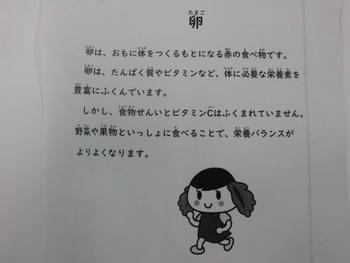 卵
卵は、おもに体をつくるもとになる赤の食べ物です。
卵は、たんぱく質やビタミンなど、体に必要な栄養素を
豊富にふくんでいます。
しかし、食物せんいとビタミンCはふくまれていません。
野菜や果物といっしょに食べることで、栄養バランスが
よりよくなります。